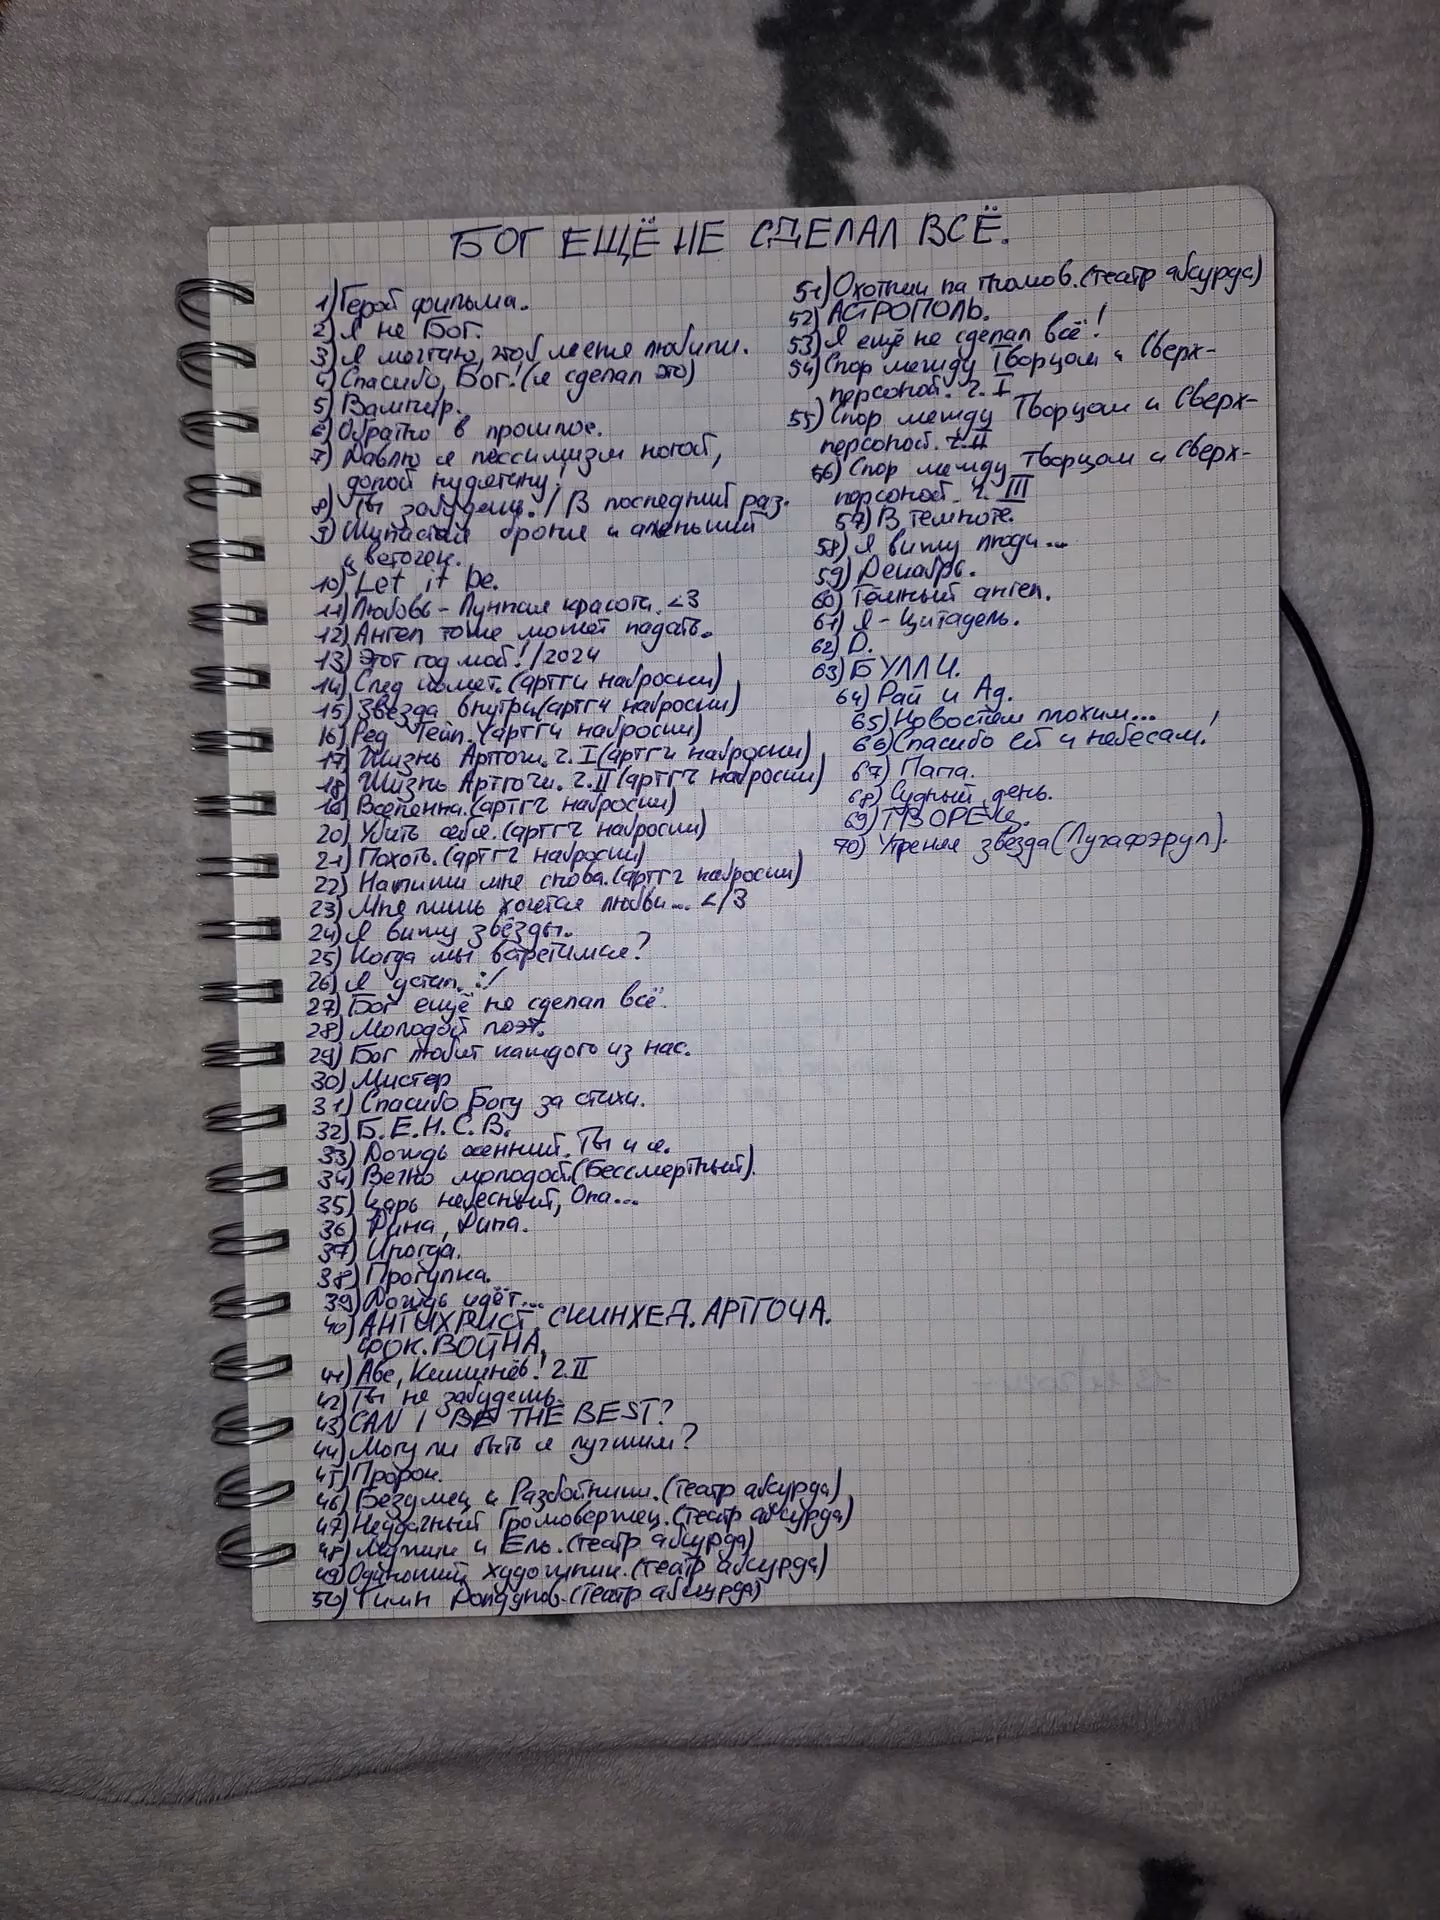 БОГ ЕЩЁ НЕ СДЕЛАЛ ВСЁ.
1) Герой фильма.
2) Я не Бог.
3) Я мечтаю, чтоб меня любили.
4) Спасибо, Бог! (я сделал это)
5) Вампир.
6) Обратно в прошлое.
7) Давлю я пессимизм ногой,
долой нудятину!
8) Ты забудешь. / В последний раз.
9) Шипастая броня и аленький
цветочек.
10) Let it be.
11) Любовь - Лунная красота. <3
12) Ангел тоже может падать.
13) Этот год мой! / 2024
14) След комет. (артгч наброски)
15) Звезда внутри. (артгч наброски)
16) Ред Тейп. (артгч наброски)
17) Жизнь Артгочи. ч. I (артгч наброски)
18) Жизнь Артгочи. ч. II (артгч наброски)
19) Вселенна. (артгч наброски)
20) Убить себя. (артгч наброски)
21) Похоть. (артгч наброски)
22) Напиши мне снова. (артгч наброски)
23) Мне лишь хочется любви... </3
24) Я вижу звёзды.
25) Когда мы встретимся?
26) Я устал. :/
27) Бог ещё не сделал всё.
28) Молодой поэт.
29) Бог любит каждого из нас.
30) Мистер
31) Спасибо Богу за стихи.
32) Б.Е.Н.С.В.
33) Дождь осенний. Ты и я.
34) Вечно молодой. (Бессмертный).
35) Царь небесный, Опа...
36) Дина, Дина.
37) Иногда.
38) Прогулка.
39) Дождь идёт...
40) АНТИХРИСТ. СКИНХЕД. АРТГОЧА.
ФОК. ВОЙНА.
41) Аве, Кишинёв! ч. II
42) Ты не забудешь.
43) CAN I BE THE BEST?
44) Могу ли быть я лучшим?
45) Пророк.
46) Безумец и Разбойники. (театр абсурда)
47) Неудачный Громовержец. (театр абсурда)
48) Мужик и Ель. (театр абсурда)
49) Одинокий художник. (театр абсурда)
50) Гимн (театр абсурда)
51) Охотник на гномов. (театр абсурда)
52) АСТРОПОЛЬ.
53) Я ещё не сделал всё!
54) Спор между Творцом и Сверх-
персоной. ч. I
55) Спор между Творцом и Сверх-
персоной. ч. II
56) Спор между Творцом и Сверх-
персоной. ч. III
57) В темноте.
58) Я вижу люди...
59) Декабрь.
60) Тёмный ангел.
61) Я - Цитадель.
62) D.
63) БУЛЛИ.
64) Рай и Ад.
65) Новостям плохим...
66) Спасибо ей и небесам!
67) Папа.
68) Судный день.
69) ТВОРЕЦ.
70) Утреняя звезда (Лучафэрул).